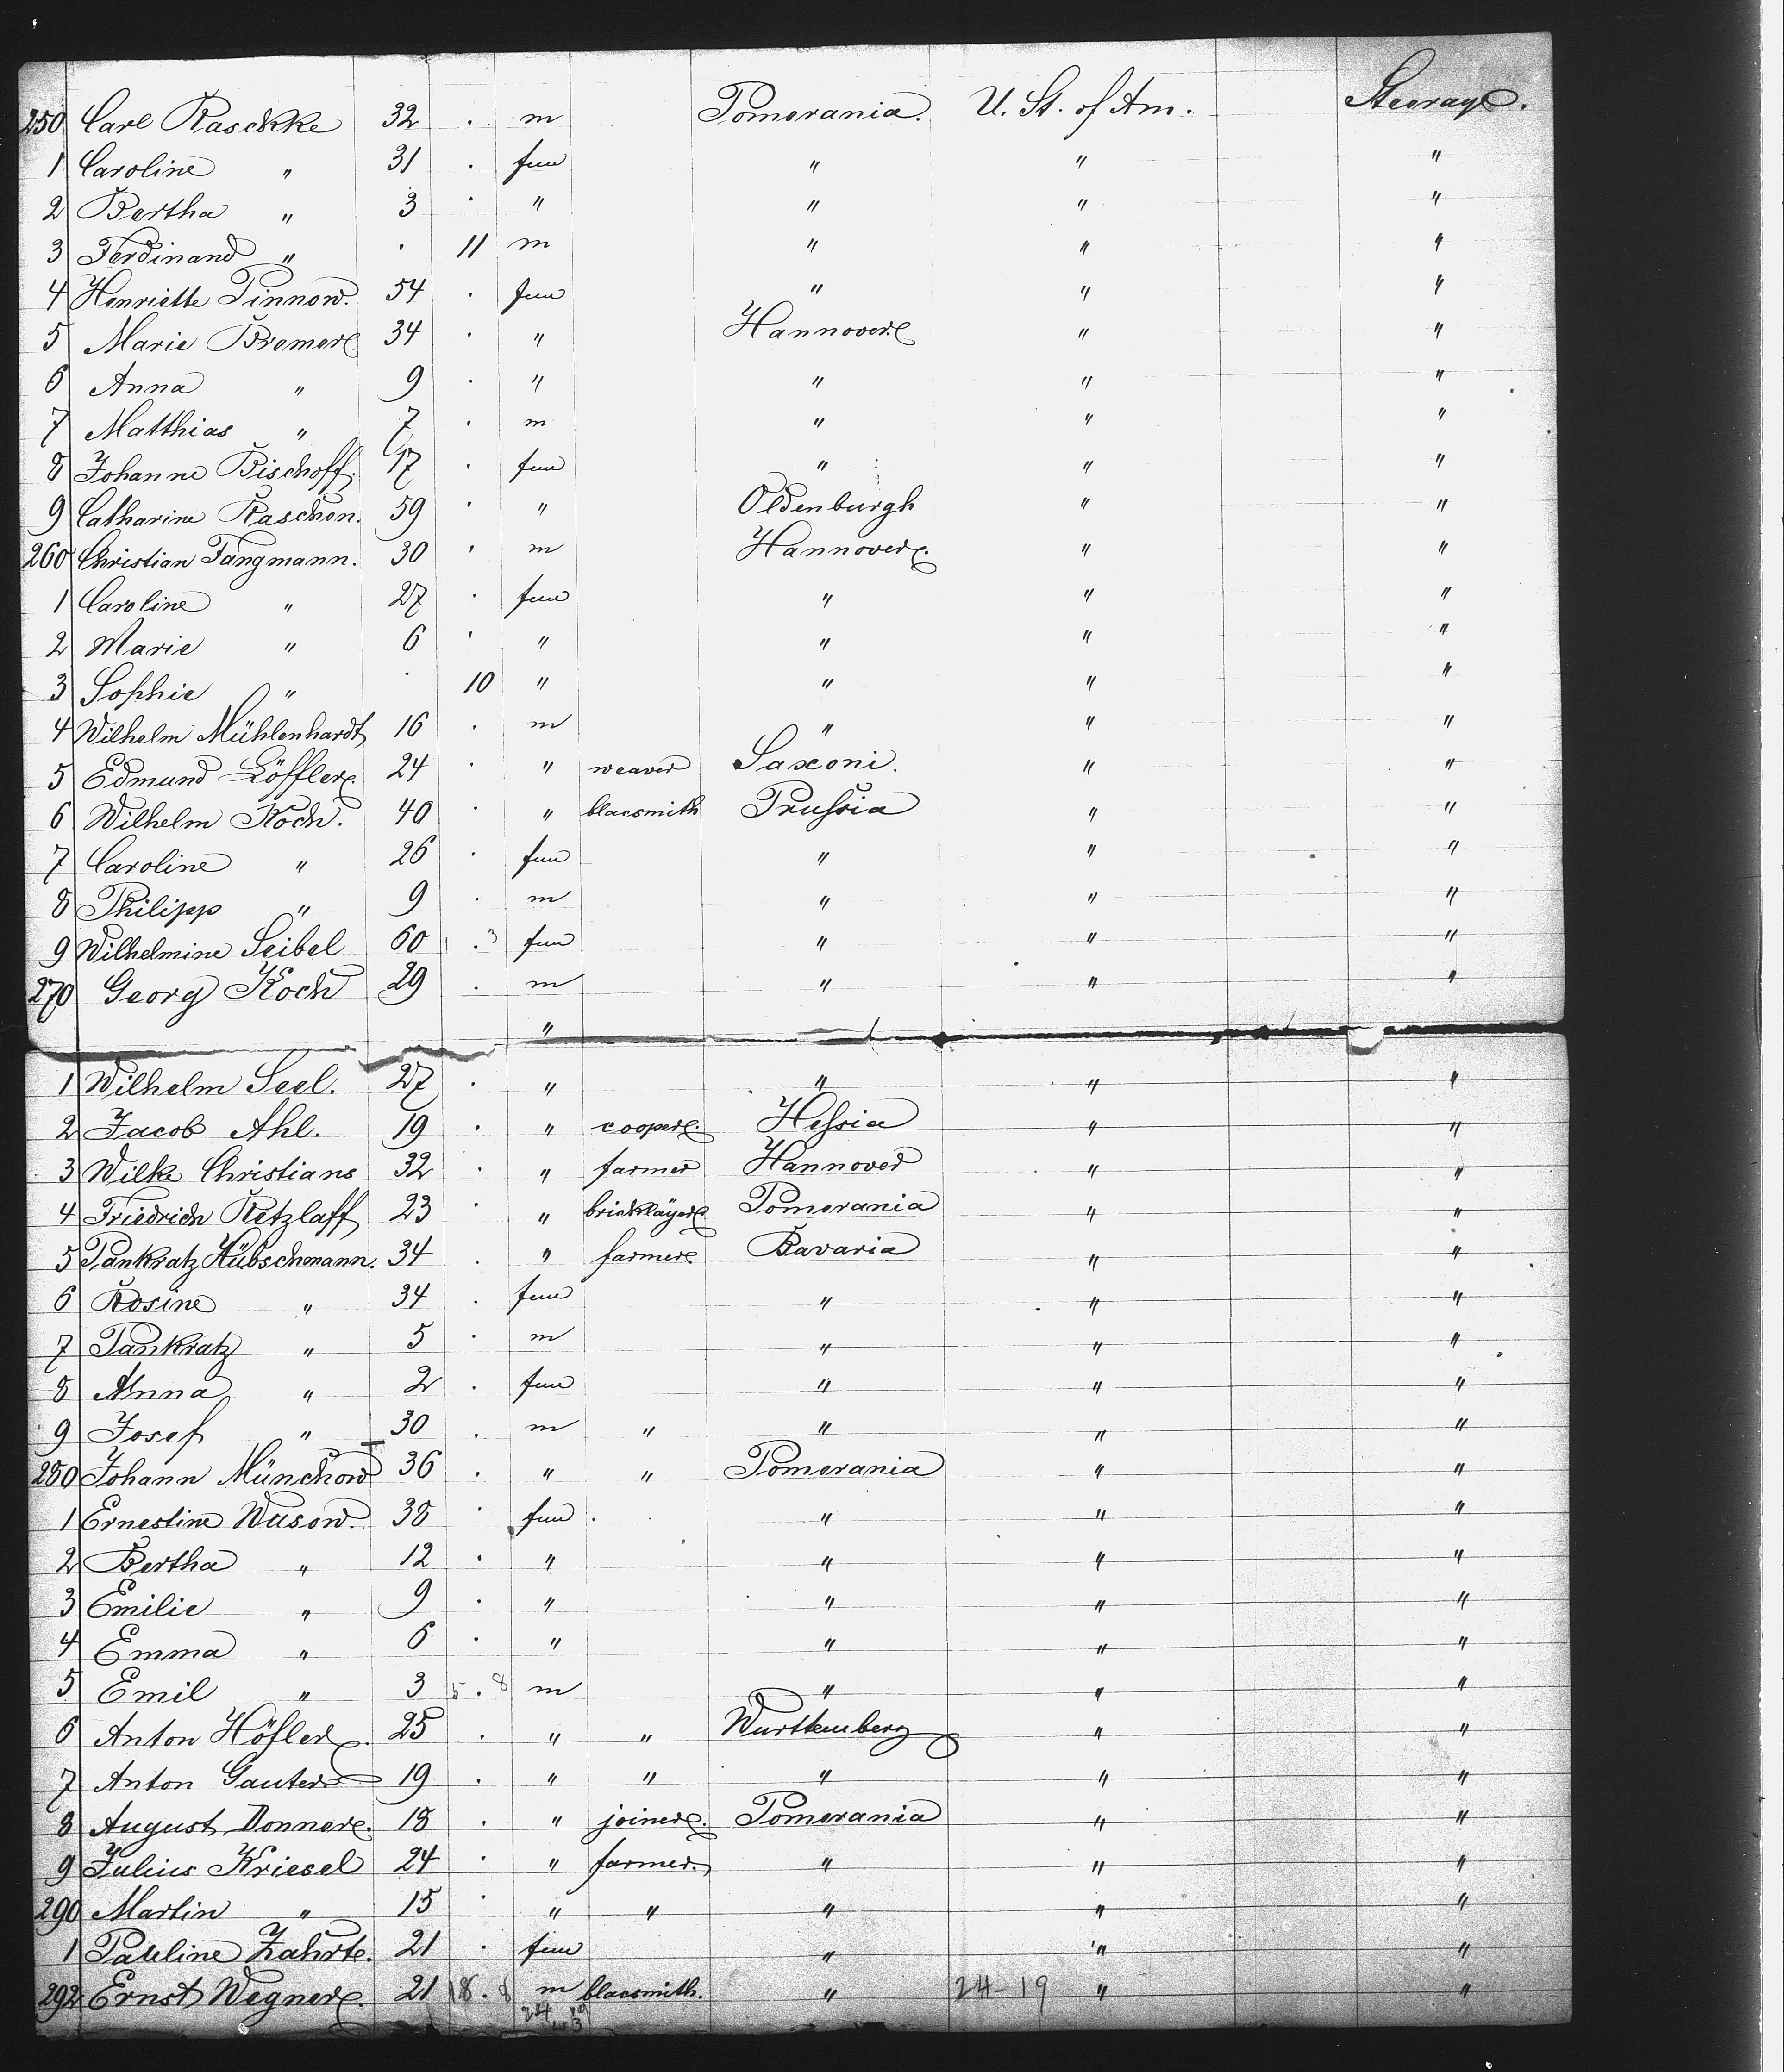 250 Carl Raschke 32 . m Pomerania. U. St. of Am. Steerage.
1 Caroline " 31 . fem " " "
2 Bertha " 3 . " " " "
3 Ferdinand " . 11 m " " "
4 Henriette Pinnow. 54 . fem " " "
5 Marie Bremer 34 . " Hannover. " "
6 Anna " 9 . " " " "
7 Matthias " 7 . m " " "
8 Johanne Bischoff. 17 . fem " " "
9 Catharine Raschen. 59 . " Oldenburgh " "
260 Christian Fangmann. 30 . m Hannover. " "
1 Caroline " 27 . fem " " "
2 Marie " 6 . " " " "
3 Sophie " . 10 " " " "
4 Wilhelm Mühlenhardt 16 . m " " "
5 Edmund Löffler. 24 . " weaver Saxoni. " "
6 Wilhelm Koch. 40 . " blacsmith Prussia " "
7 Caroline " 26 . fem " " "
8 Philipp " 9 . m " " "
9 Wilhelmine Seibel 60 1 . 3 fem " " "
270 Georg Koch 29 . m " " "
"
1 Wilhelm Seel. 27 . " " " "
2 Jacob Ahl. 19 . " cooper. Hessia " "
3 Wilke Christians 32 . " farmer Hannover " "
4 Friedrich Retzlaff 23 . " bricklayer Pomerania " "
5 Pankratz Hübschmann. 34 . " farmer Bavaria " "
6 Rosine " 34 . fem " " "
7 Pankratz " 5 . m " " "
8 Anna " 2 . fem " " "
9 Josef " 30 . m " " " "
280 Johann Münchow 36 . " " Pomerania " "
1 Ernestine Wusow. 38 . fem . " " "
2 Bertha " 12 . " " " "
3 Emilie " 9 . " " " "
4 Emma " 6 . " " " "
5 Emil " 3 5 . 8 m " " "
6 Anton Höfler. 25 . " " Wurttemberg " "
7 Anton Gauter 19 . " " " " "
8 August Donner. 18 . " joiner. Pomerania " "
9 Julius Kriesel 24 . " farmer. " " "
290 Martin " 15 . " " " " "
1 Pauline Zahrte. 21 . fem " " "
292 Ernst Wegner. 21 18 . 8 m blacsmith. " 24-19 " "
24